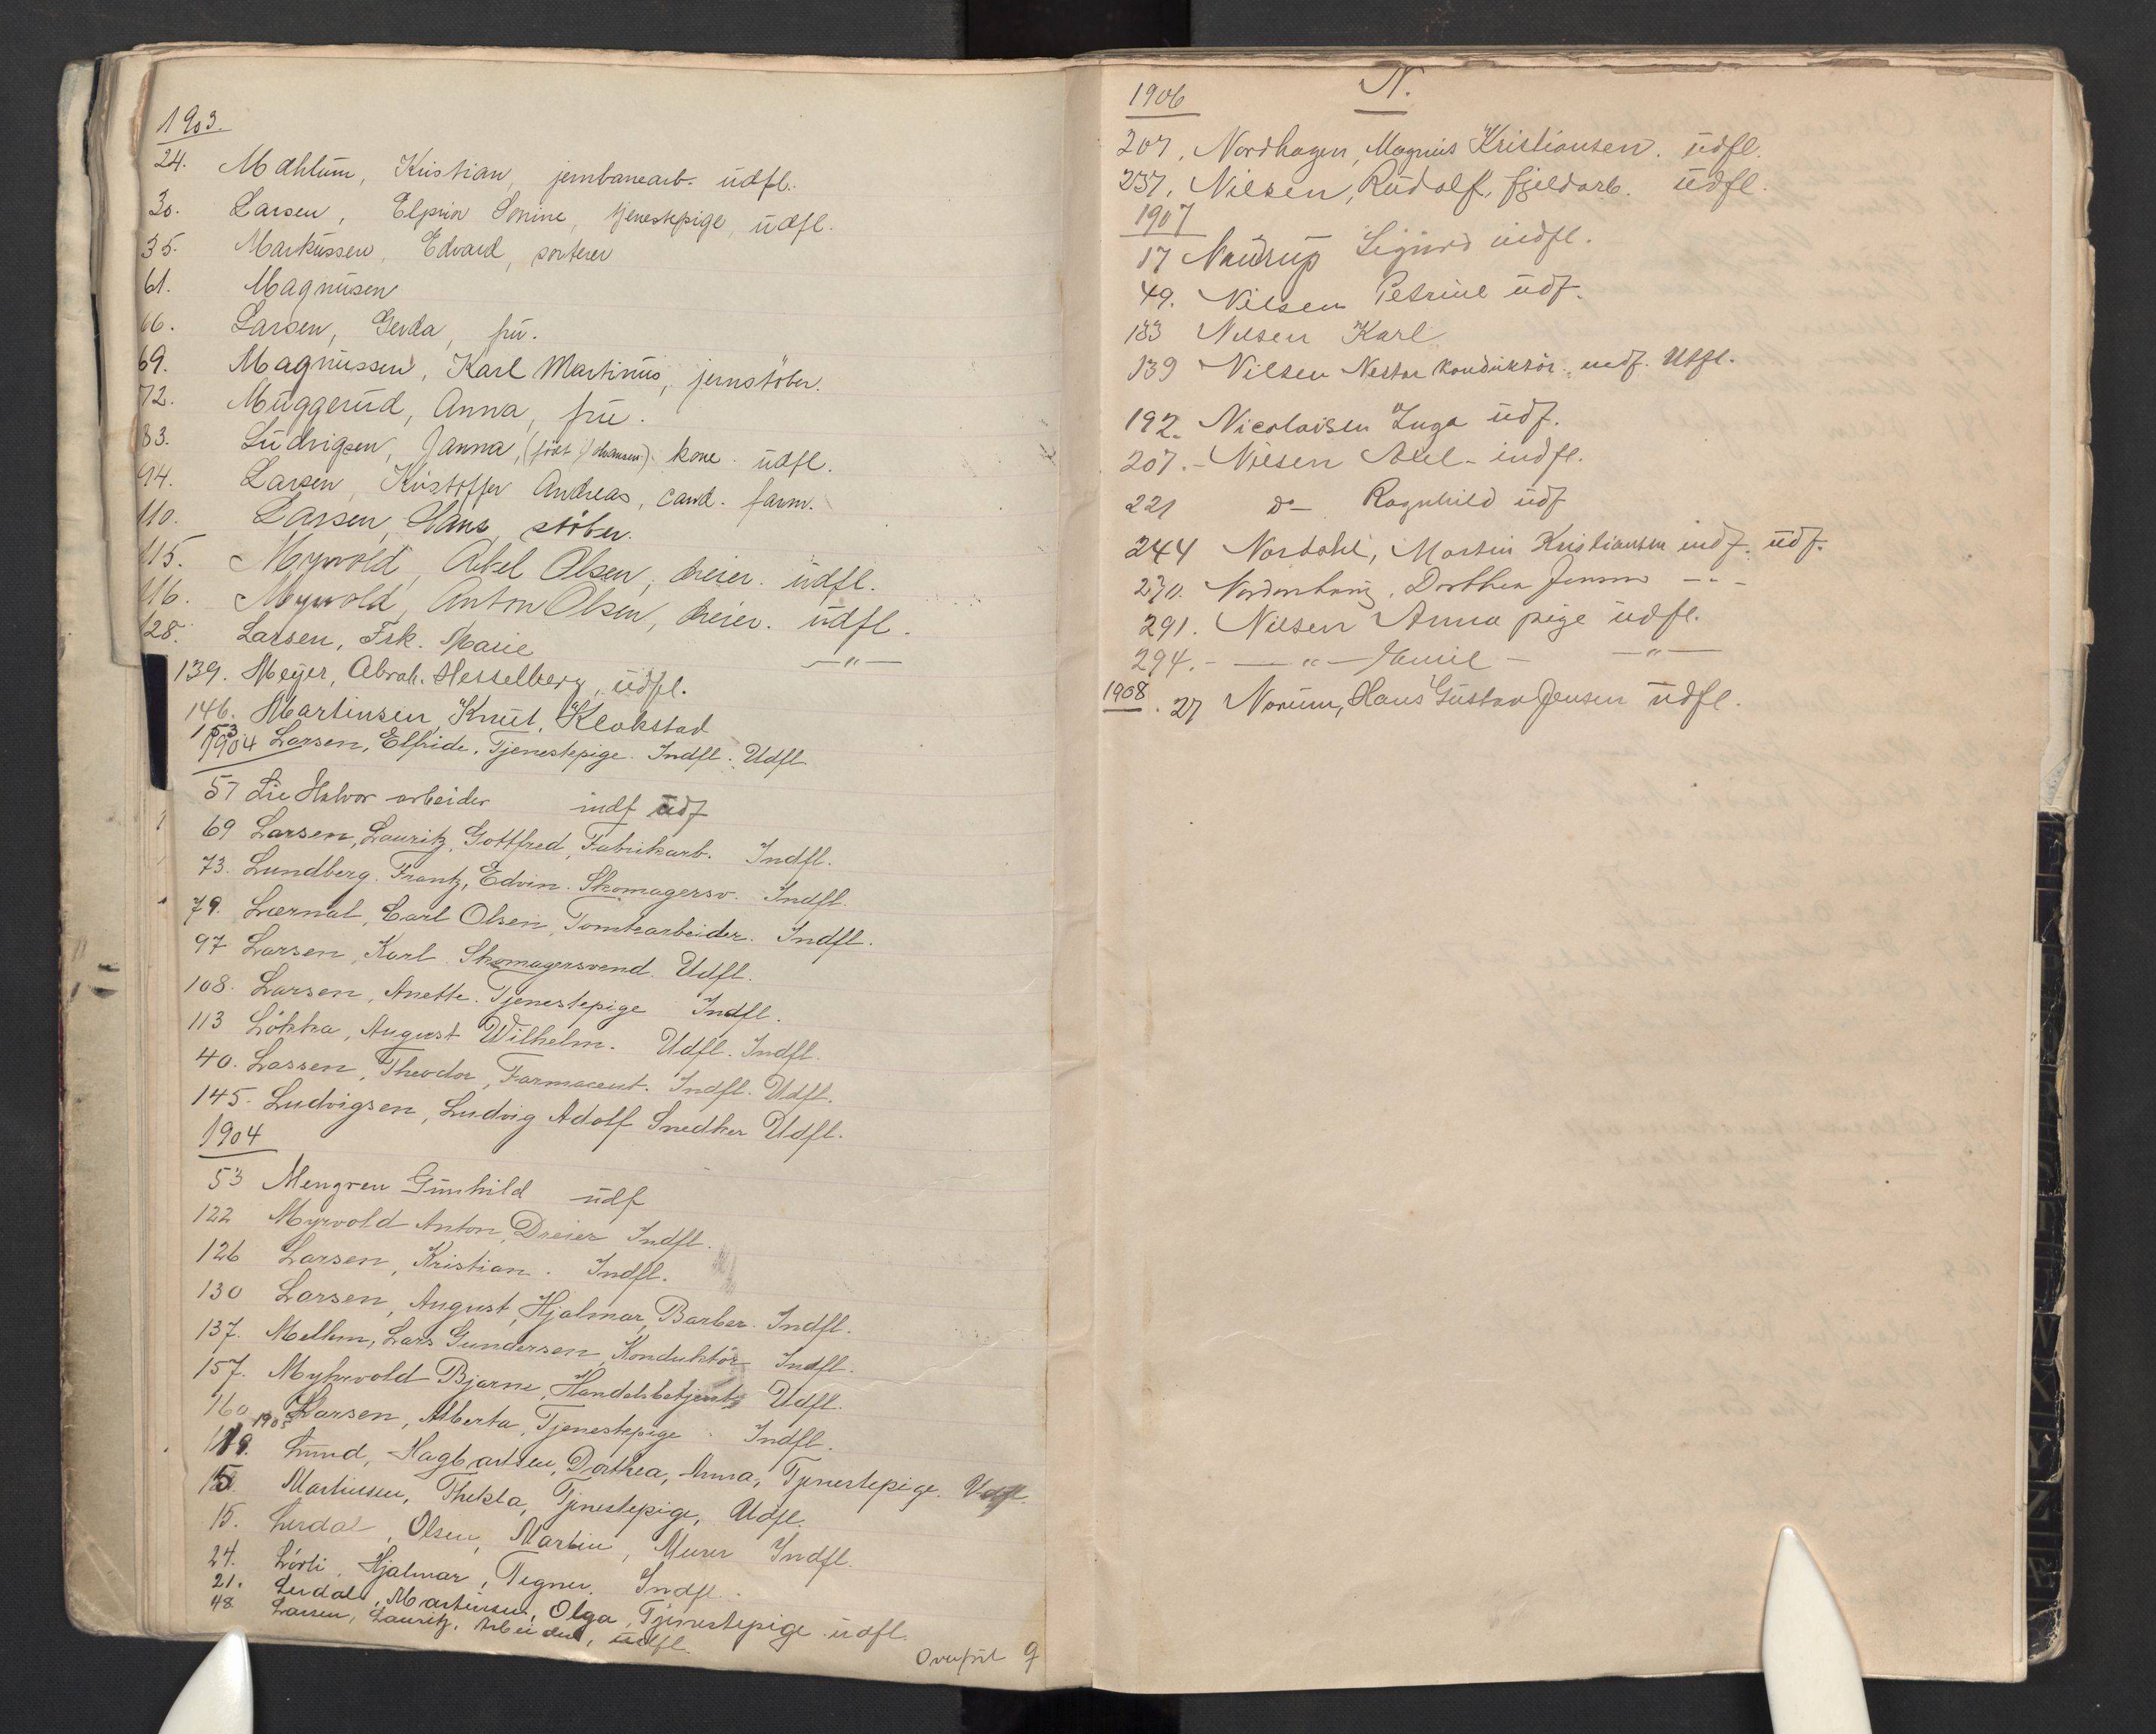 1903.
24. Mæhlum, Kristian, jernbanearb. udfl.
30. Larsen, Sonine, tjenestepige, udfl.
35. Markussen, Edvard, sorterer
61. Magnusen
66. Larsen, Gerda, fru.
69. Magnussen, Karl Martinus, jernstöber.
72. Muggerud, Anna, frue.
83. Ludvigsen, Janna, (födt Johansen). kone. udfl.
94. Larsen, Kristoffer Andreas, cand. farm.
110. Larsen, Hans, støber.
115. Myrvold, Abel Olsen, dreier. udfl.
116. Myrvold, Anton Olsen, dreier. udfl.
128. Larsen, Frk. Marie —"—
139. Meyer, Abrah. Hesselberg, udfl.
146. Martinsen, Knut, Klokstad
153. Larsen, Elfride, Tjenestepige. Indfl. Udfl.
1904
57 Lie Halvor arbeider indf udf
69 Larsen, Lauritz, Gottfred, Fabrikarb. Indfl.
73. Lundberg. Frantz, Edvin. Skomagersv. Indfl.
79. Carl Olsen, Tomtearbeider. Indfl.
97 Larsen, Karl Skomagersvend. Udfl.
108. Larsen, Anette. Tjenestepige Indfl.
113 Lökka, August Wilhelm. Udfl. Indfl.
40. Lassen, Theodor, Farmaceut. Indfl. Udfl.
145. Ludvigsen, Ludvig Adolf Snedker Udfl.
1904
53 Mengren Gunhild udf
122 Myrvold Anton, Dreier Indfl.
126 Larsen, Kristian. Indfl.
130 Larsen, August, Hjalmar, Barber. Indfl.
137. Mellem, Lars Gundersen, Konduktör Indfl.
157. Myhrvold Bjarne, Handelsbetjent Udfl.
160. Larsen, Alberta, Tjenestepige. Indfl.
1905
Lund, Hagbartsen, Dorthea, Anna, Tjenestepige. Udfl.
Martinsen, Thekla, Tjenestepige, Udfl.
15. Lerdal, Olsen, Martin, Murer Indfl.
24. Lörli, Hjalmar, Tegner. Indfl.
21. Lerdal, Martinsen, Olga, Tjenestepige udfl.
48. Larsen, Lauritz, Arbeider, udfl.
Overfört 9
N.
1906
207. Nordhagen, Magnus Kristiansen. udfl.
237. Nilsen, Rudolf, fjeldarb. udfl.
1907
17 Naudrup Sigurd indfl.
49. Nilsen Petrine udf.
133 Nilsen Karl
139 Nilsen Nestor Konduktör. indf. Utfl.
192. Nicolaisen Inga udf.
207. - Nilsen Axel - indfl.
221 do Ragnhild udf
244 Nordahl, Martin Kristiansen indf. udf.
270. Dorthea Jensen -"-
291. Nilsen Anna pige udfl.
294. - —"— Emil - —"—
1908. 27 Norum, Hans Gustav Jensen udfl.